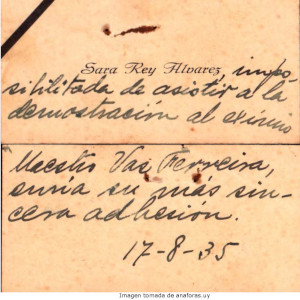 Sara Rey Alvarez, impo-
sibilitada de asistir a la
demostración al eximio
Maestro Vaz Ferreira,
envía su más sin-
cera adhesión.
17-8-35
Imagen tomada de anaforas.uy